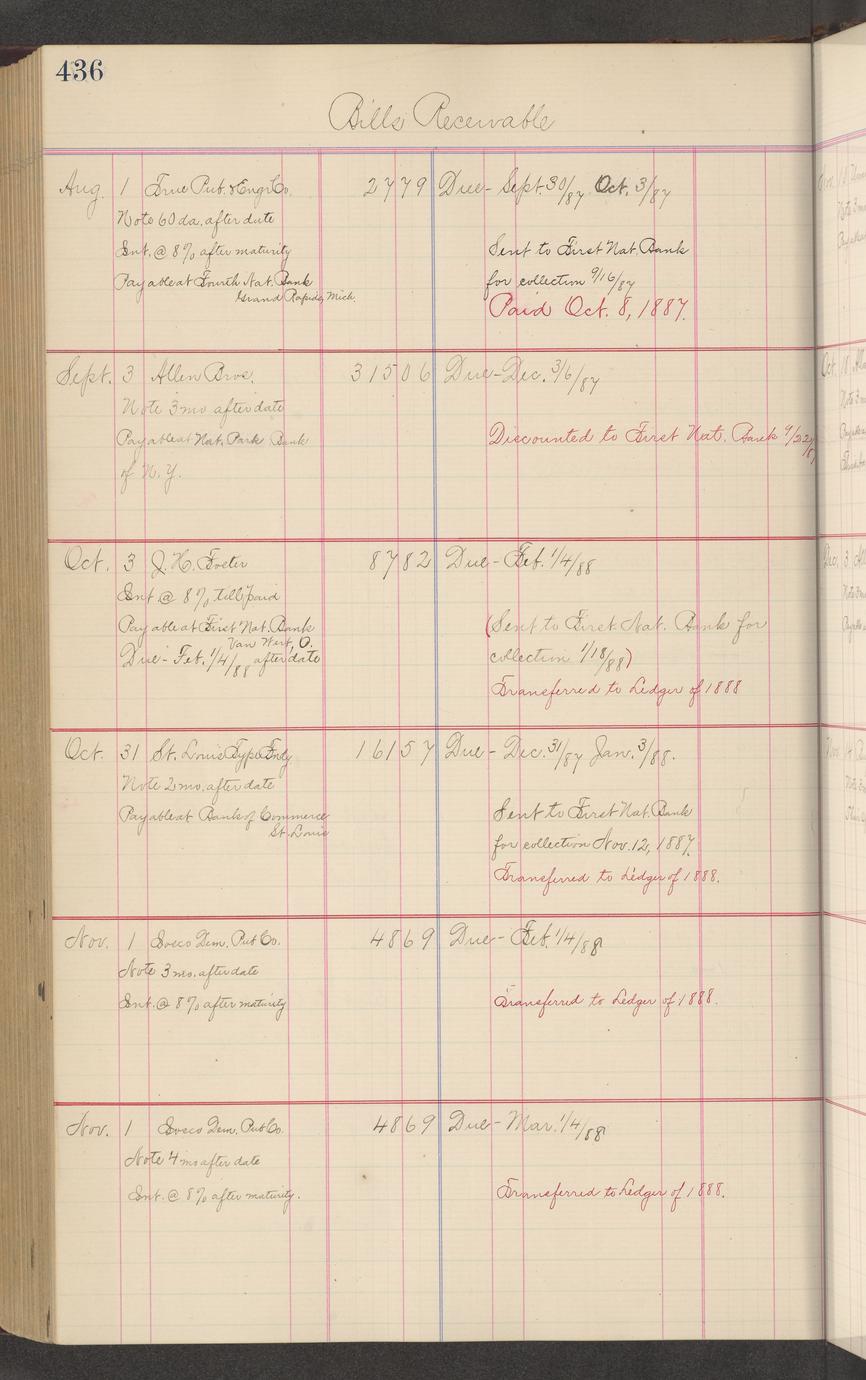 436
Bills Receivable
Aug. 1 True Pub. & Engr. Co. 2779 Due - Sept. 30/87 Oct. 3/87
Note 60 da. after date
Int. @ 8% after maturity Sent to First Nat. Bank
Payable at Fourth Nat. Bank for collection 9/16/87
Grand Rapids, Mich.
Paid Oct. 8, 1887.
Sept. 3 Allen Bros. 31506 Due - Dec. 3/6/87
Note 3 mo after date
Payable at Nat. Park Bank Discounted to First Nat. Bank 9/22/87
of N. Y.
Oct. 3 J. H. Foster 8782 Due - Feb. 1/4/88
Int @ 8% till paid
Payable at First Nat. Bank (Sent to First Nat. Bank for
Van Wert, O.
Due - Feb. 1/4/88 after date collection 1/18/88)
Transferred to Ledger of 1888
Oct. 31 St. Louis Type Fndy 16157 Due - Dec. 31/87 Jan. 3/88.
Note 2 mo. after date
Payable at Bank of Commerce Sent to First Nat. Bank
St. Louis
for collection Nov. 12, 1887.
Transferred to Ledger of 1888.
Nov. 1 Dem. Pub Co. 4869 Due - Feb. 1/4/88
Note 3 mo. after date
Int. @ 8% after maturity Transferred to Ledger of 1888.
Nov. 1 Dem. Pub Co. 4869 Due - Mar. 1/4/88
Note 4 mo after date
Int. @ 8% after maturity. Transferred to Ledger of 1888.